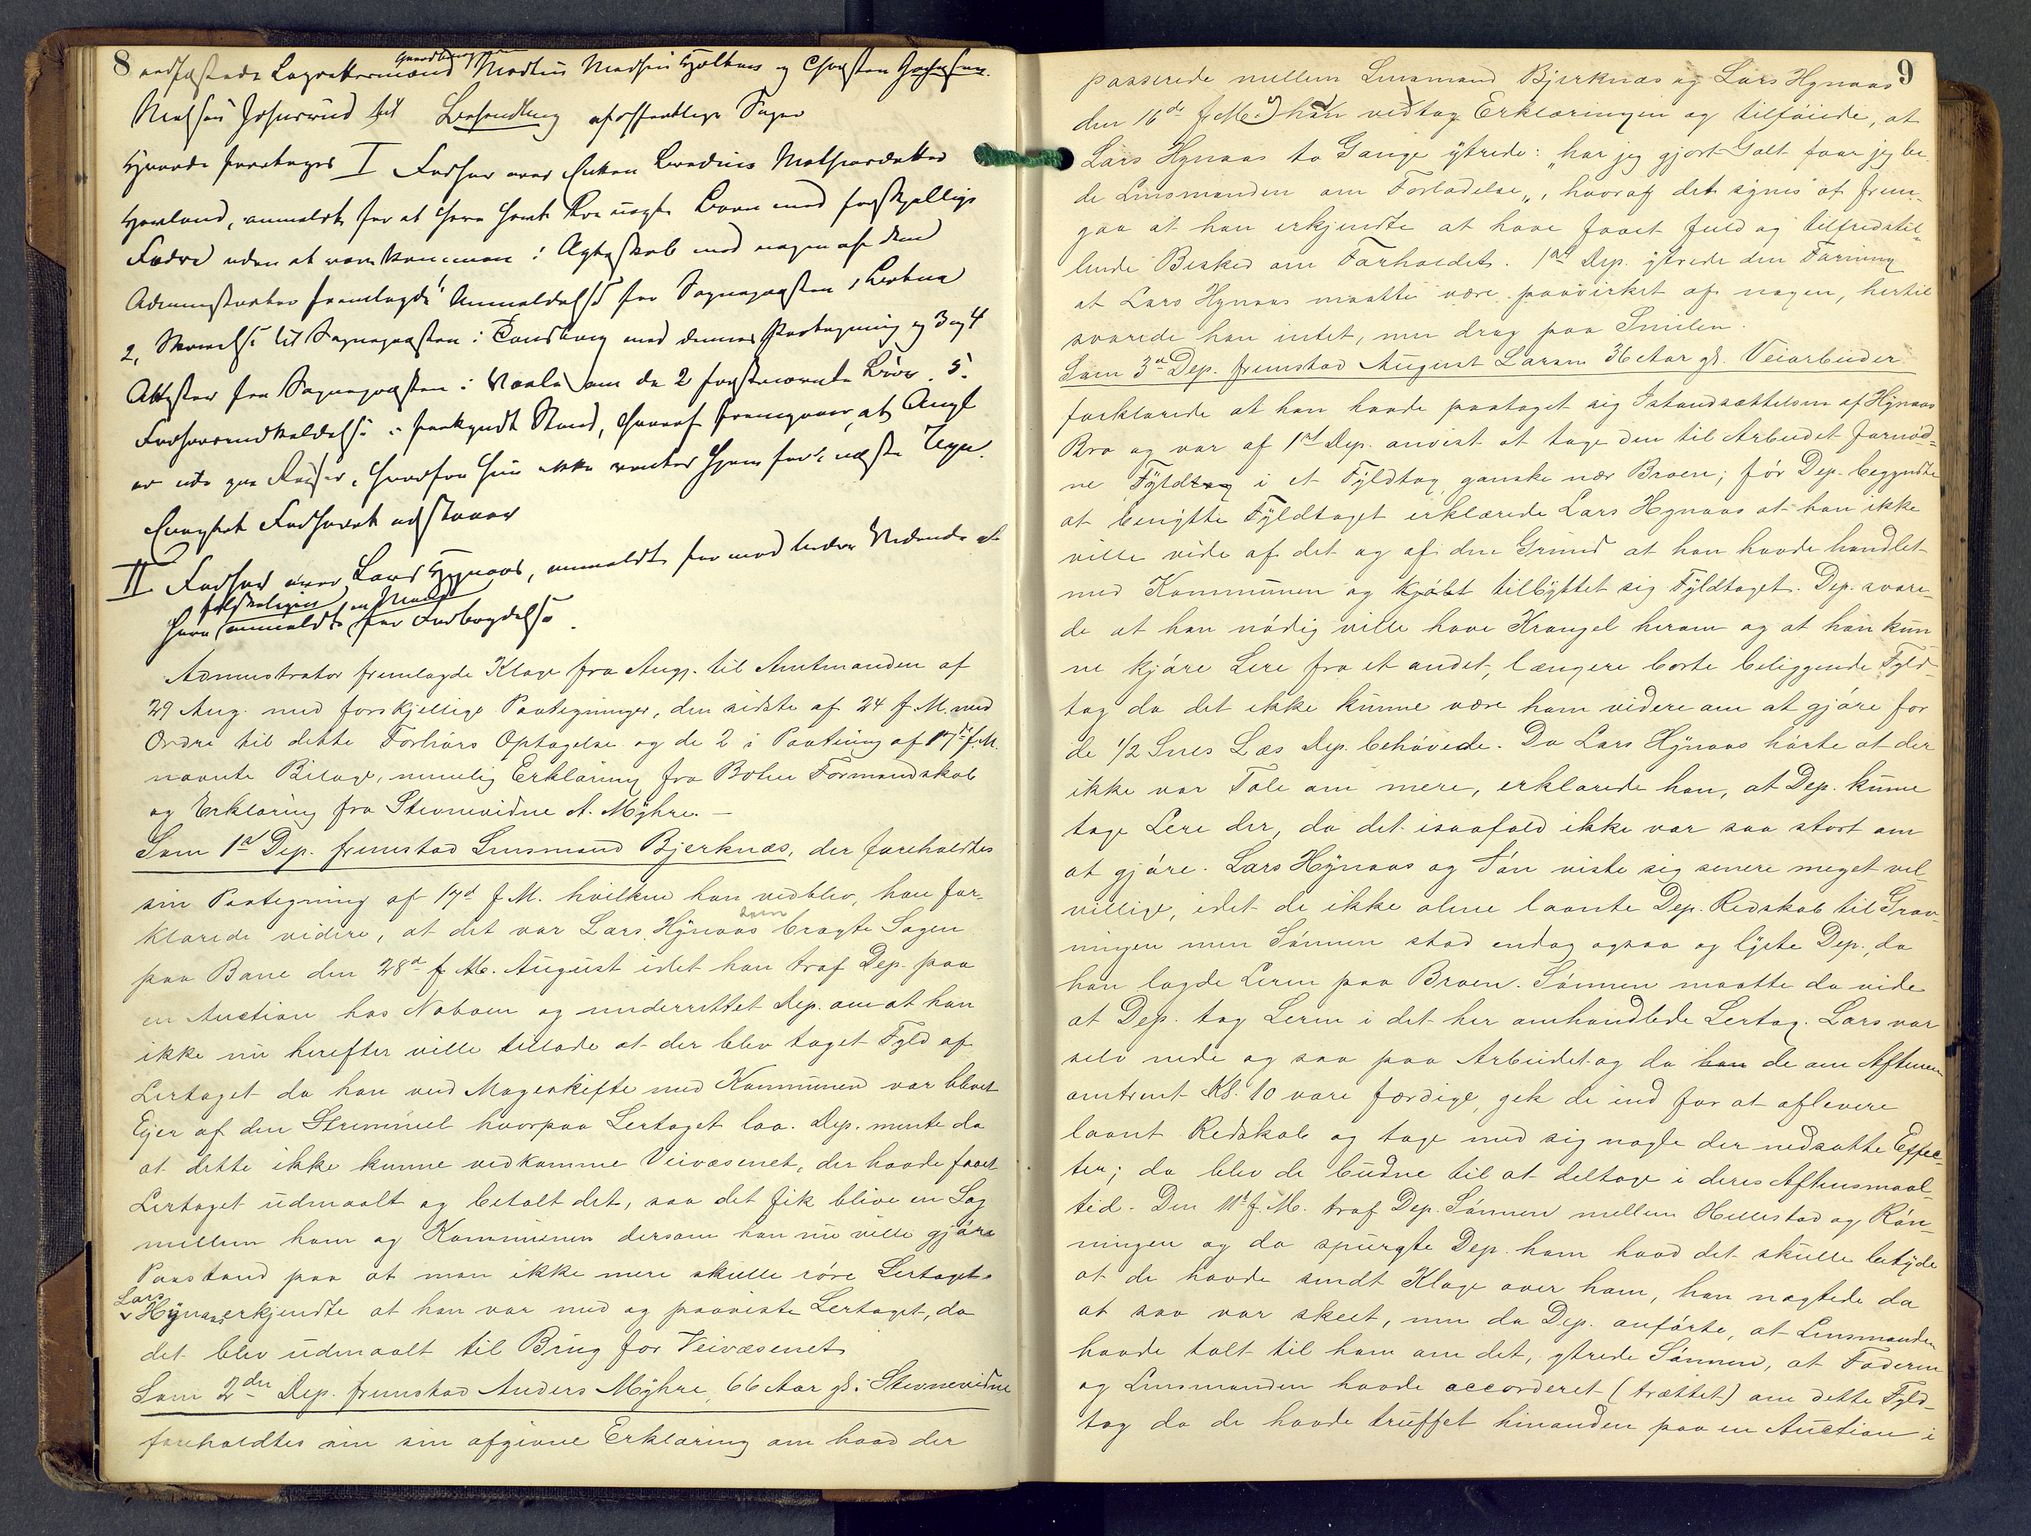 8
Madsen Hjelkaas og
til Behandling af offentlige Sager
foretages I Forhør over Enken
anmeldt for at have
Fædre uden at være kommen i Ægteskab med nogen af dem
Administrator fremlagde 1 Anmeldelse fra Sognepresten i Botne
2, Skrivelse til Sognepresten i Tønsberg med dennes Paategning og 3 og 4
Attester fra Sognepresten i Vaale om de 2 førstnævnte Børn. 5.
i forkyndt Stand, hvoraf fremgaar, at Angt
er ude paa Reiser, hvorfor hun ikke ventes hjem før i næste Uge.
Forhøret udstaaar
II Forhør over Lars Hynaas, anmeldt for mod bedre Vidende at
falskeligen en Mand
have anmeldt for Forbrydelse.
Administrator fremlagde Klage fra Ang. til Amtmanden af
29 Aug. med forskjellige Paategninger, den sidste af 24 f. M. med
Ordre til dette Forhørs Optagelse og de 2 i Paategning af 17de f. M.
nævnte Bilage, nemlig Erklæring fra Botne Formandskab
og Erklæring fra Stevnevidne A. Myhre. —
Som 1st Dep. fremstod Lensmand Bjerknæs, der foreholdtes
sin Paategning af 17d f. M. hvilken han vedblev, han for-
klarede videre, at det var Lars Hynaas som bragte Sagen
paa Bane den 28d f. M. August idet han traf Dep. paa
en Auction hos Naboen og underrettet Dep. om at han
ikke nu herefter ville tillade at der blev taget Fyld af
Lertaget da han ved Mageskifte med Kommunen var blevet
Ejer af den Strimmel hvorpaa Lertaget laa. Dep. mente da
at dette ikke kunne vedkomme Veivæsenet, der havde faaet
Lertaget udmaalt og betalt det, saa det fik blive en Sag
mellem ham og Kommunen dersom han nu ville gjøre
Paastand paa at man ikke mere skulle røre Lertaget.
Lars
Hynaas erkjendte at han var med og paaviste Lertaget, da
det blev udmaalt til Brug for Veivæsenet
Som 2den Dep. fremstod Anders Myhre, 66 Aar gl. Stevnevidne
foreholdtes sin sin afgivne Erklæring om hvad der
9
passerede mellem Lensmand Bjerknæs og Lars Hynaas
den 16de f. M. han vedtog Erklæringen og tilføiede, at
Lars Hynaas to Gange ytrede: "har jeg gjort Galt faar jeg be-
de Lensmanden om Forladelse", hvoraf det synes at frem-
gaa at han erkjendte at have faaet fuld og tilfredsstil-
lende Besked om Forholdet. 1st Dep. ytrede den Formening
at Lars Hynaas maatte være paavirket af nogen, hertil
svarede han intet, men drog paa Smilen.
Som 3d Dep. fremstod August Larsen 36 Aar gl. Veiarbeider
forklarede at han havde paataget sig Istandsættelsen af Hynaas
Bro og var af 1st Dep. anvist at tage den til Arbeidet fornød-
ne Fyldtag i et Fyldtag ganske nær Broen; før Dep. begyndte
at benytte Fyldtaget erklærede Lars Hynaas at han ikke
ville vide af det og af den Grund at han havde handlet
med Kommunen og kjøbt tilbyttet sig Fyldtaget. Dep. svare-
de at han nødig ville have Krangel herom og at han kun-
ne kjøre Lere fra et andet, længere borte beliggende Fyld-
tag da det ikke kunne være ham videre om at gjøre for
de 1/2 Snes Læs Dep. behøvede. Da Lars Hynaas hørte at der
ikke var Tale om mere, erklærede han, at Dep. kunne
tage Lere der, da det isaafald ikke var saa stort om
at gjøre. Lars Hynaas og Søn viste sig senere meget vel-
villige, idet de ikke alene laante Dep. Redskab til Grav-
ningen men Sønnen stod endog ogsaa og lyste Dep., da
han lagde Leren paa Broen. Sønnen maatte da vide
at Dep. tog Leren i det her omhandlede Lertag. Lars var
selv nede og saa paa Arbeidet og da han de om Aftenen
omtrent Kl. 10 vare færdige, gik de ind for at aflevere
laant Redskab og tage med sig nogle der nedsatte Effec-
ter; da blev de budne til at deltage i deres Aftensmaal-
tid. Den 11te f. M. traf Dep. Sønnen mellem Hillestad og Røn-
ningen og da spurgte Dep. ham hvad det skulle betyde
at de havde sendt Klage over ham, han nægtede da
at saa var skeet, men da Dep. anførte, at Lensmanden
havde talt til ham om det, ytrede Sønnen, at Faderen
og Lensmanden havde accorderet (trættet) om dette Fyld-
tag da de havde truffet hinanden paa en Auction i